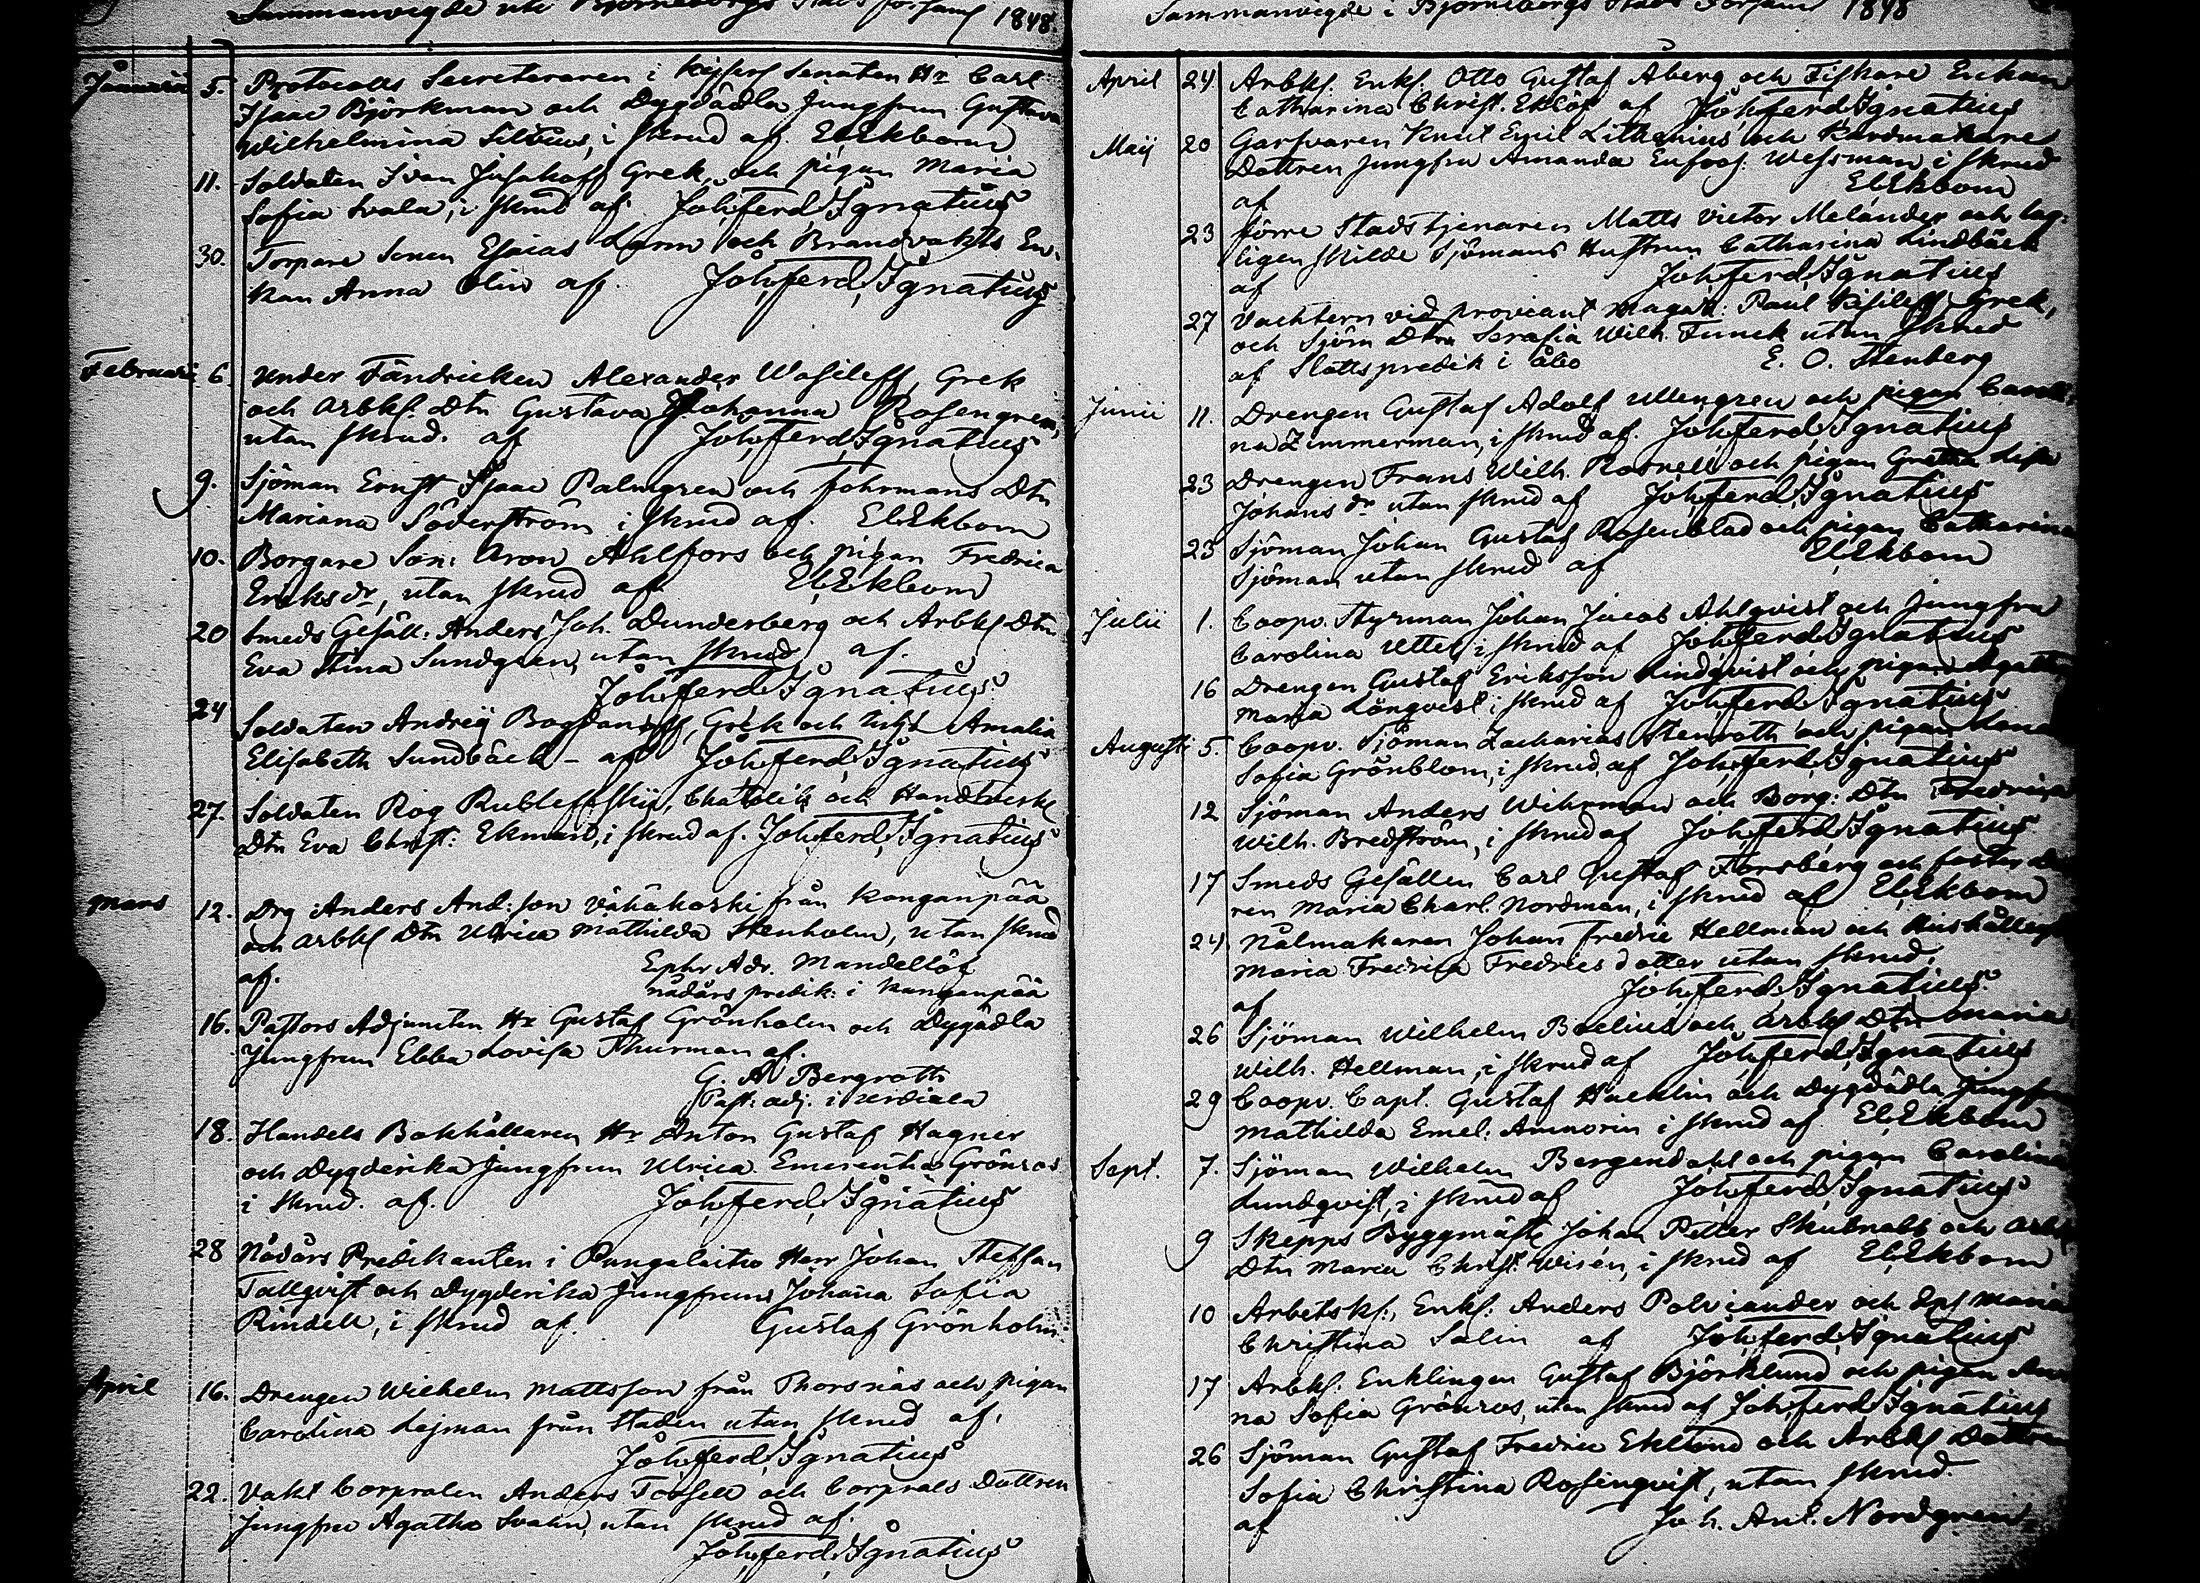 Sammanvigde uti Björneborgs Stads församl 1848.
Januarii 5. Protocolls Secreteraren i Kejserl Senaten Hr Carl
Isaac Björkman och Dygdädla Jungfrun Gustava
Wilhelmina, i skrud af. El. Ekbom
11. Soldaten Ivan Grek, och pigan Maria
Sofia Svala, i skrud af. Joh. ferd. Ignatius
30. Torpare Sonen Esaias Larm och Brandvakts En-
kan Anna Olin af. Joh. ferd. Ignatius
Februarii 6. Under Fändricken Alexander Wasileff, Grek
och arbkl. Dtn Gustava Johanna Rosengren,
utan skrud. af Joh. ferd. Ignatius
9. Sjöman Ernst Isaac Palmgren och fohrmans Dtn
Mariana Söderström i skrud af. El. Ekbom
10. Borgare Son: Aron Ahlfors och pigan Fredrica
Eriksdr, utan skrud af El. Ekbom
20 Smeds Gesäll: Anders Joh. Dunderberg och Arbkl Dtn
Eva Stina Sundgren, utan skrud af.
Joh. ferd. Ignatius
24 Soldaten Andrej Bogdanoff, Grek och Amalia
Elisabeth Sundbäck - af Joh. ferd. Ignatius
27. Soldaten Rog, Chatolik och Handtverk
Dtn Eva Christ: Ekman, i skrud af. Joh. ferd. Ignatius
Mars 12. Drg Anders And:son Vähäkoski från Kanganpää
och arbkl Dtn Ulrica Mathilda Stenholm, utan skrud
af. Ephr. Adr. Mandellöf
nådårs predik: i Kanganpää
16. Pastors Adjuncten Hr Gustaf Grönholm och Dygdädla
Jungfrun Ebba Lovisa Thurman af.
G. A. Bergroth
Past: adj. i Urdiala
18. Handels Bokhållaren Hr Anton Gustaf Hagner
och Dygderika Jungfrun Ulrica Emerentia Grönroos
i skrud. af. Joh. ferd. Ignatius
28 Nådårs Predikanten i Pungalaitio Herr Johan Steffan
Tallqvist och Dygderika Jungfrun Johana Sofia
Rindell, i skrud af. Gustaf Grönholm.
April 16. Drengen Wilhelm Mattsson från Thorsnäs och pigan
Carolina Lejman från Staden utan skrud af.
Joh. ferd. Ignatius
22. Vakt Corpralen Anders och Corprals Dottren
Jungfru Agatha Svahn, utan skrud af.
Joh. ferd. Ignatius
Sammanvigde i Björneborgs Stads Församl 1848
April 24 Arbkl. Enkl. Otto Gustaf Åberg och Fiskare Enkan
Catharina Christ. Eklöf af Joh. ferd. Ignatius
Maij 20 Garfvaren Knut Emil Lithenius och
Dottren jungfru Amanda Eufros. Wessman i skrud
af El. Ekbom
23 förre Stadstjenaren Matts Victor Melander och lag-
ligen skilde Sjömans Hustrun Catharina Lindbäck
af Joh. ferd. Ignatius
27 Vachtern vid proviant Magaz: Paul Kisileff Grek,
och Sjöm Dtn Serafia Wilh. Funck utan skrud
af Slottspredik i Åbo E. O. Stenberg
Junii 11. Drengen Gustaf Adolf Ullengren och pigan Caroli-
na Zimmerman, i skrud af. Joh. ferd. Ignatius
23 Drengen Frans Wilh. Rosnell och pigan Greta Lisa
Johans dr utan skrud af Joh. ferd. Ignatius
23 Sjöman Johan Gustaf Rosenblad och pigan Catharina
Sjöman utan skrud af El. Ekbom
Julii 1. Coopv. Styrman Johan Jacob Ahlqvist och Jungfru
Carolina Utter, i skrud af Joh. ferd. Ignatius
16 Drengen Gustaf Eriksson Lindqvist och pigan Agatha
Maria Lönqvist, i skrud af Joh. ferd. Ignatius
Augusti 5. Coopv. Sjöman Zacharias Stenroth och pigan Lena
Sofia Grönblom, i skrud af Joh. ferd. Ignatius
12 Sjöman Anders Wihrman och Borg: Dtn Fredrica
Wilh. Bredström, i skrud af Joh. ferd. Ignatius
17 Smeds Gesällen Carl Gustaf Florsberg och foster
ren Maria Charl. Nordman, i skrud af El. Ekbom
24 Nålmakaren Johan Fredric Hellman och
Maria Fredrica Fredricsdotter utan skrud.
af Joh. ferd. Ignatius
26 Sjöman Wilhelm Boelius och Arbkl Dtn Maria
Wilh. Hellman, i skrud af Joh. ferd. Ignatius
29 Coopv. Capt. Gustaf Häcklin och Dygdädla Jungfru
Mathilda Emel: Ammorin i skrud af El. Ekbom
Sept. 7. Sjöman Wilhelm Bergendahl och pigan Carolina
Lundqvist, i skrud af Joh. ferd. Ignatius
9 Skepps Byggmäst. Johan Petter Skutnabb och arbk
Dtn Maria Christ. Wisén, i skrud af El. Ekbom
10 Arbetskl, Enkl. Anders Polviander och Maria
Christina Salin af Joh. ferd. Ignatius
17 Arbkl. Enklingen Gustaf Björklund och pigan An
na Sofia Grönroos, utan skrud af Joh. ferd. Ignatius
26 Sjöman Gustaf Fredric Eklund och Arbkl Dottren
Sofia Christina Rosenqvist, utan skrud.
af Joh. Ant. Nordgren